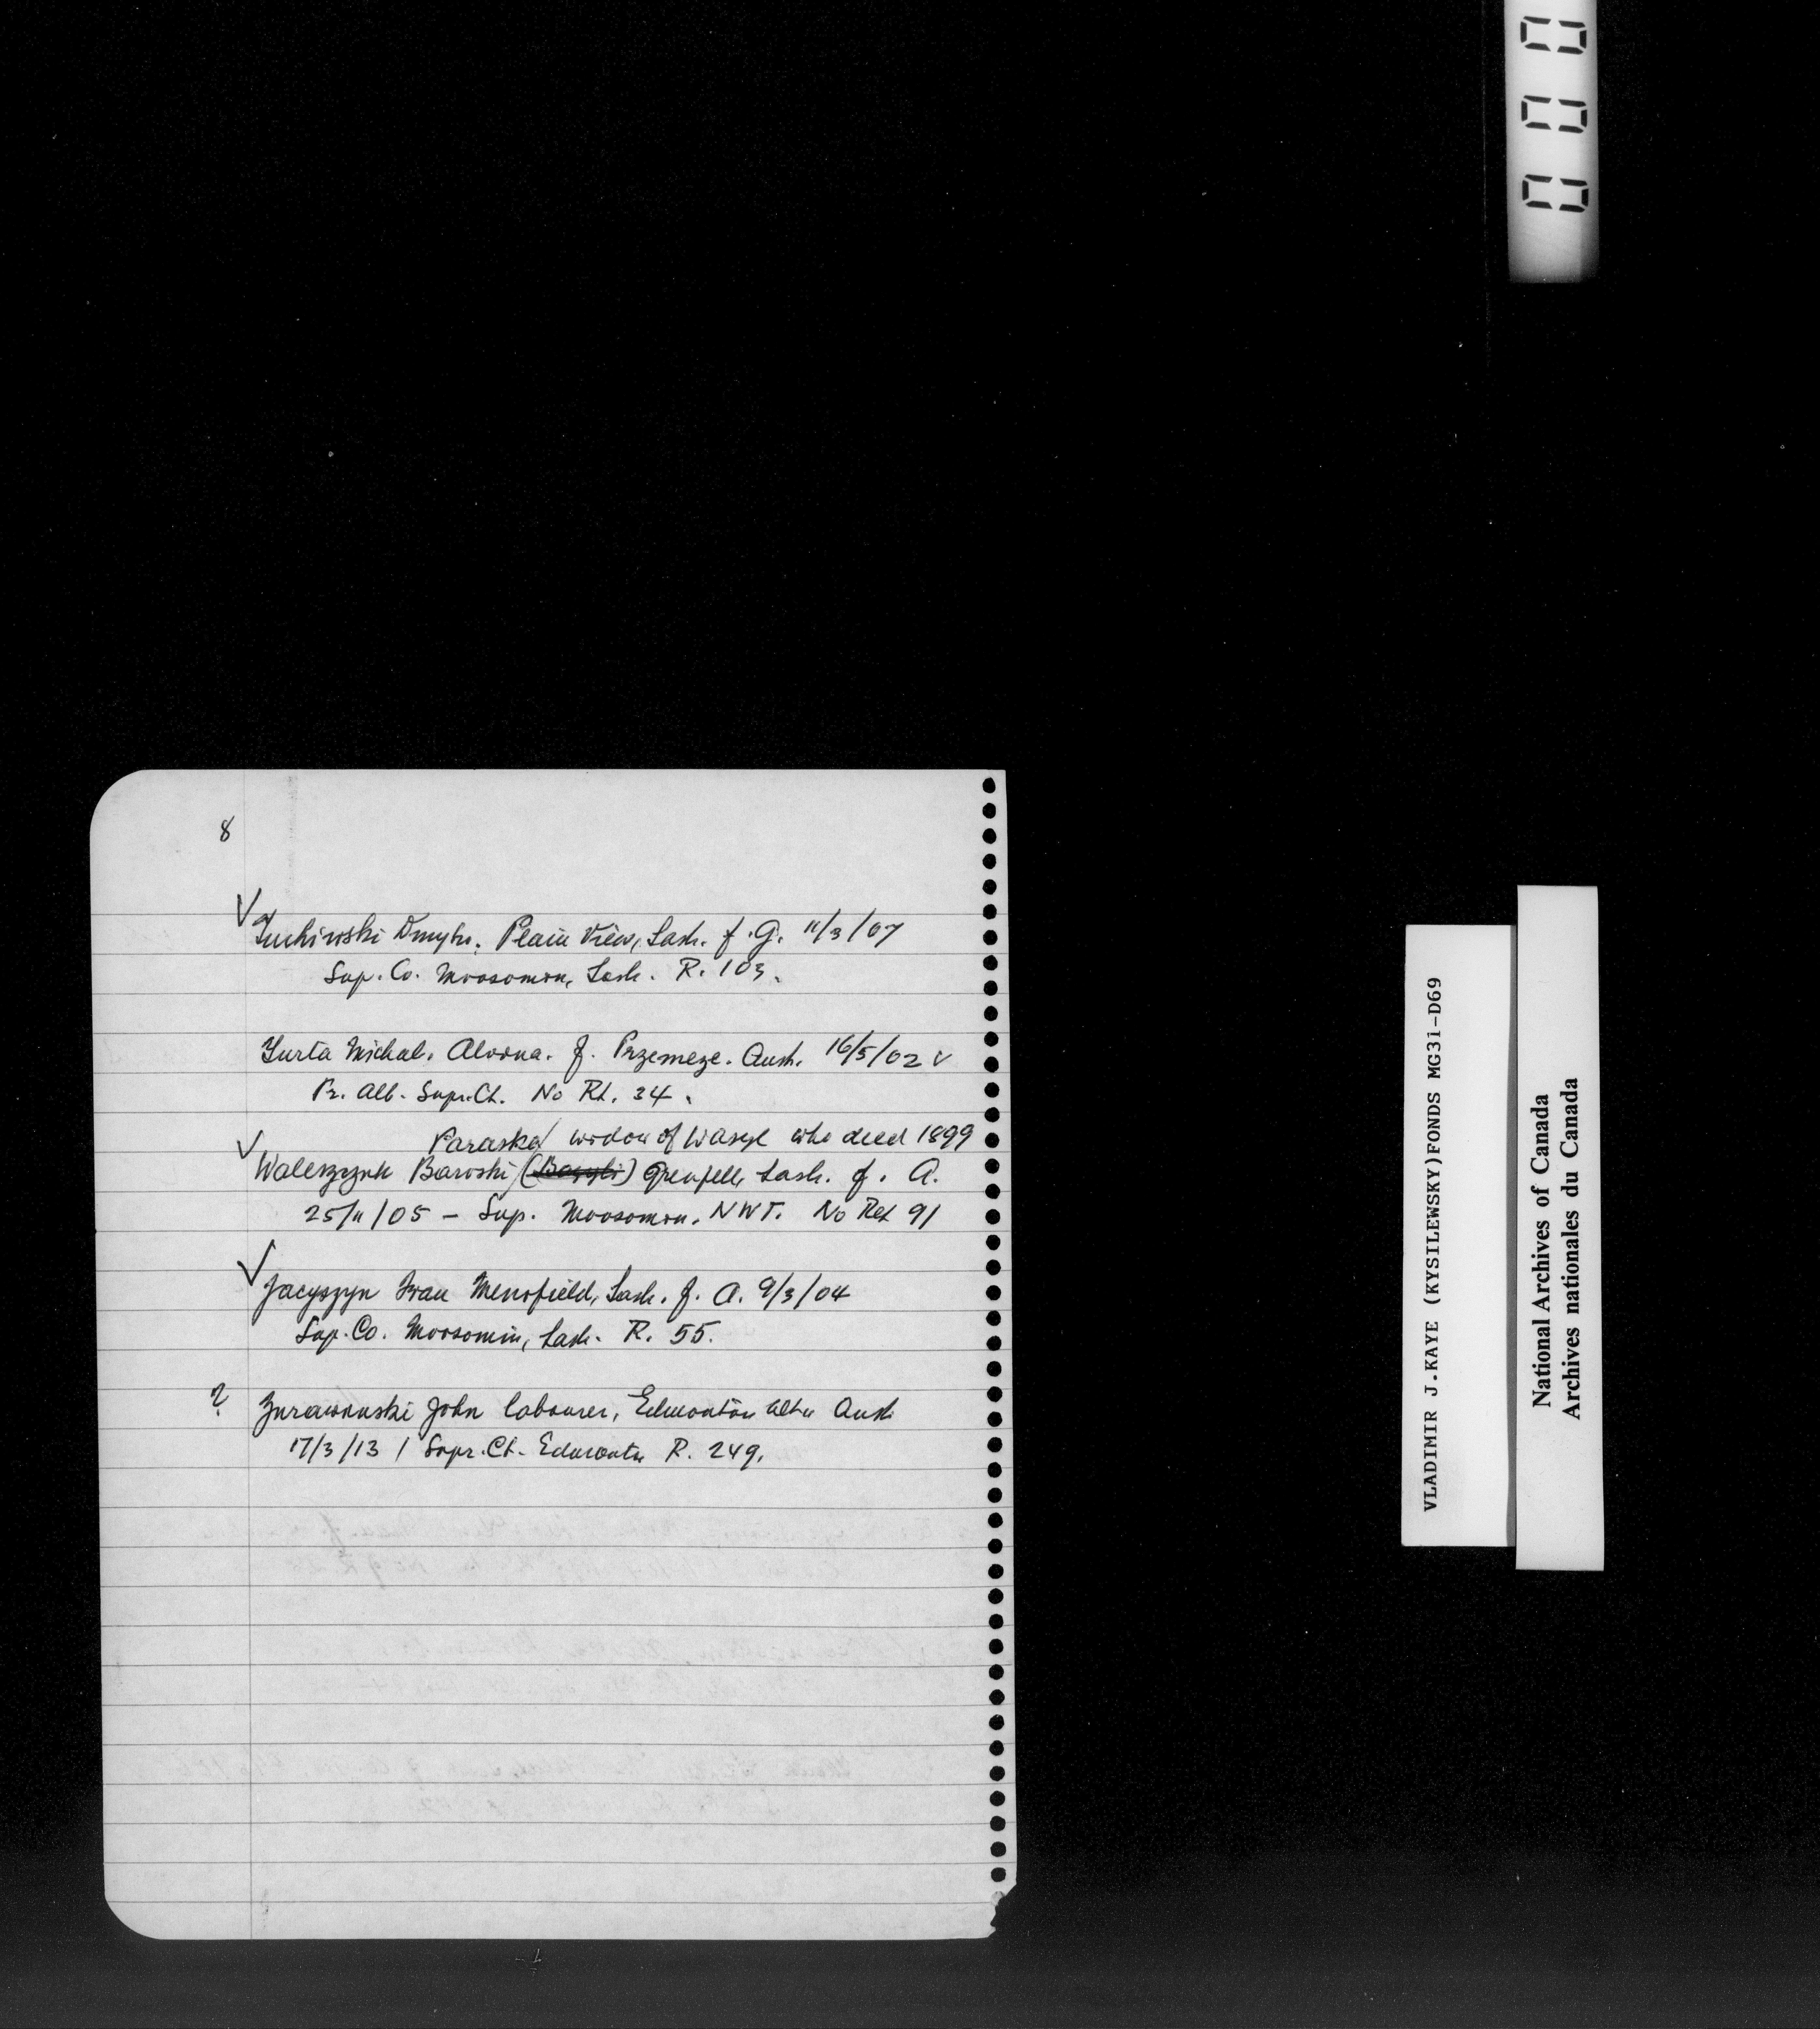 8
✓ Juchiwski Dmytro. Plain View, Sask. f. G. 11/3/07
Sup. Co. Moosomin, Sask. R. 103.
Yurta Michal. Alvena. f. Przemeze. Aust. 16/5/02 ✓
Pr. Alb. Supr. Ct. No Rt. 34.
Paraska / widow of Wasyl who died 1899
✓ Waleszczuk Baroski ( ) Grenfell, Sask. f. A.
25/11/05 – Sup. Moosomin. NWT. No Ret 91
✓ Jacyszyn Iwan Menofield, Sask. f. A. 9/3/04
Sup. Co. Moosomin, Sask. R. 55.
? Zurawenski John labourer, Edmonton Alta Aust
17/3/13 / Supr. Ct. Edmonton R. 249.
VLADIMIR J.KAYE (KYSILEWSKY)FONDS MG31-D69
National Archives of Canada
Archives nationales du Canada